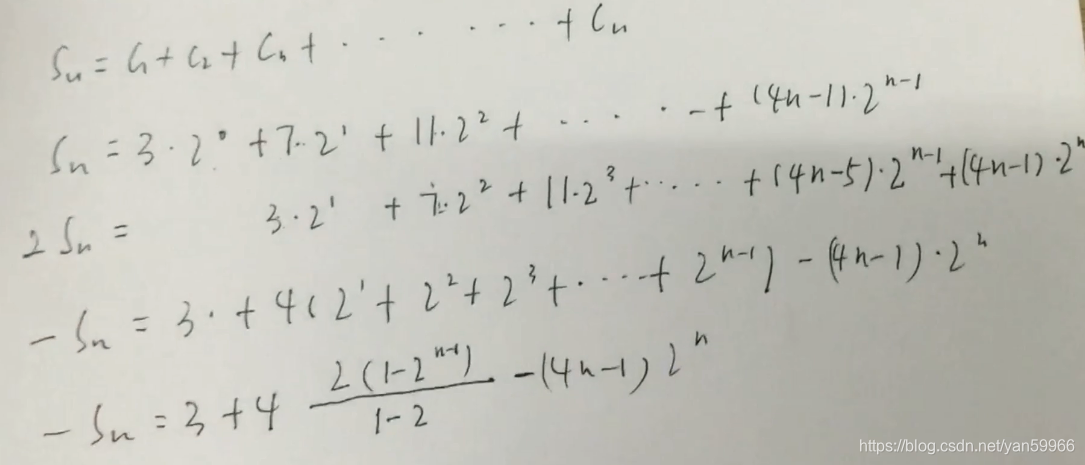 Sn = C1 + C2 + C3 + · · · · · · · + Cn
Sn = 3 · 2^0 + 7 · 2^1 + 11 · 2^2 + · · · · · + (4n-1) · 2^(n-1)
2Sn = 3 · 2^1 + 7 · 2^2 + 11 · 2^3 + · · · · · + (4n-5) · 2^(n-1) + (4n-1) · 2^n
- Sn = 3 · + 4 ( 2^1 + 2^2 + 2^3 + · · · · + 2^(n-1) ] - (4n-1) · 2^n
- Sn = 3 + 4 2(1-2^(n-1)) / 1-2 - (4n-1) 2^n
https://blog.csdn.net/yan59966